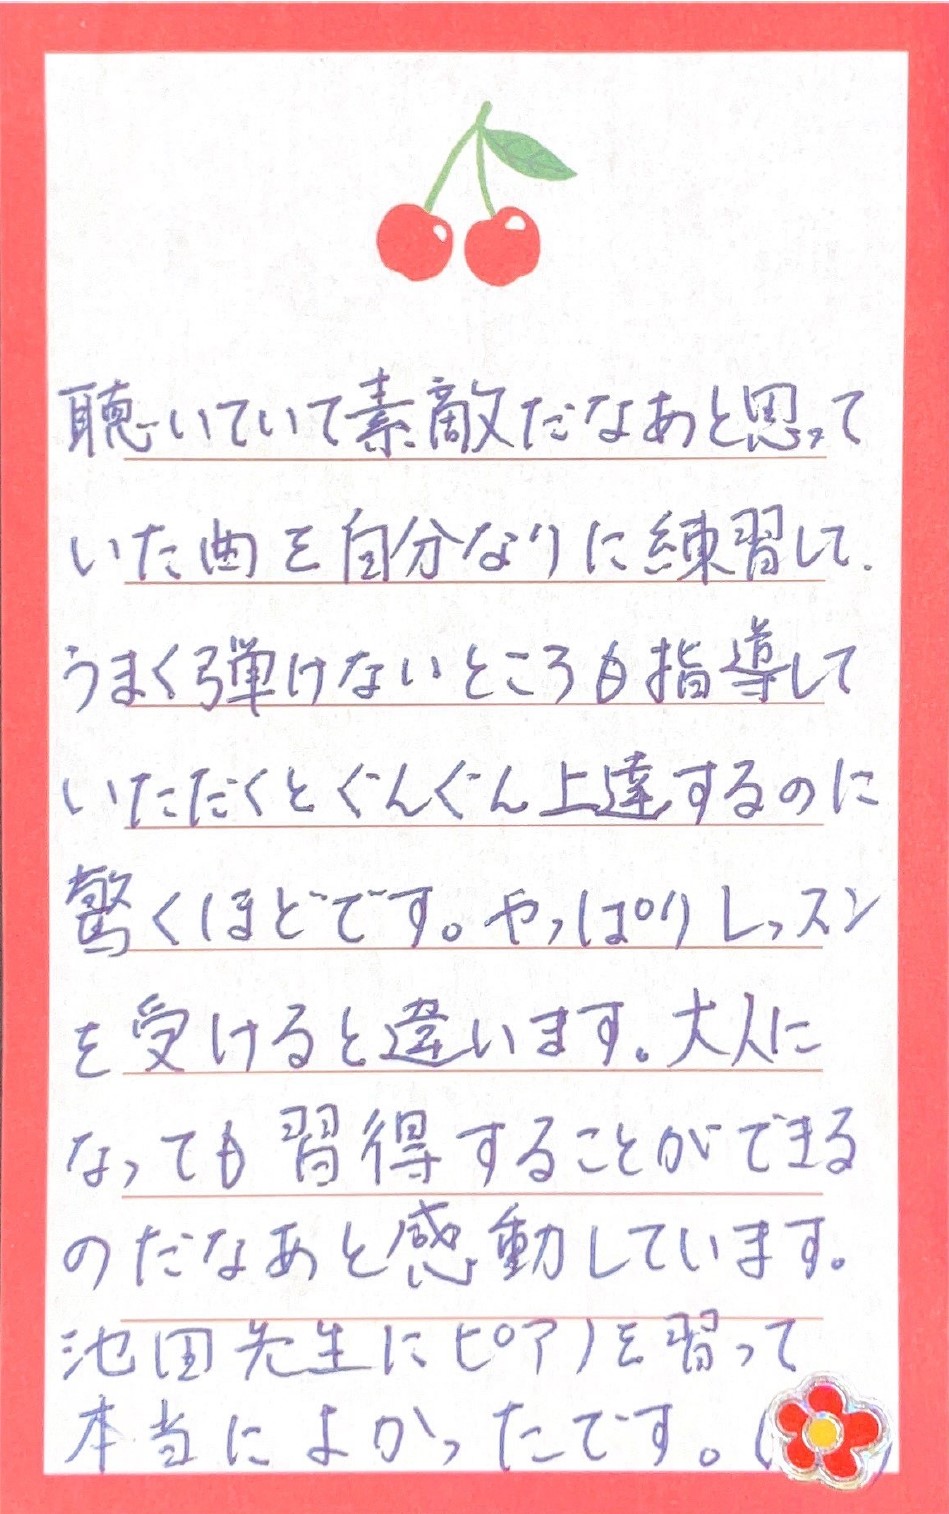 聴いていて素敵だなあと思って
いた曲を自分なりに練習して、
うまく弾けないところも指導して
いただくとぐんぐん上達するのに
驚くほどです。やっぱりレッスン
を受けると違います。大人に
なっても習得することができる
のだなあと感動しています。
池田先生にピアノを習って
本当によかったです。(